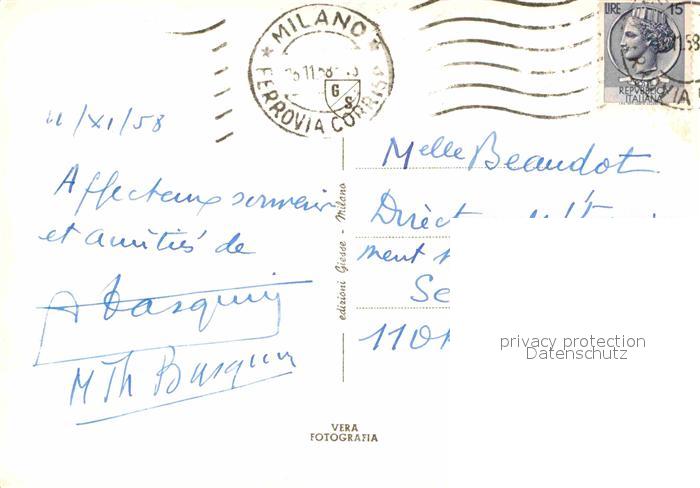 MILANO
FERROVIA CORRISP
11.58
G
S
LIRE 15
REPVBBLICA
ITALIANA
11/XI/58
Affectueux souvenir
et amitiés de
M Th Basquin
edizioni Giesse - Milano
Melle Beaudot
Direct
ment
Se
1101
privacy protection
Datenschutz
VERA
FOTOGRAFIA